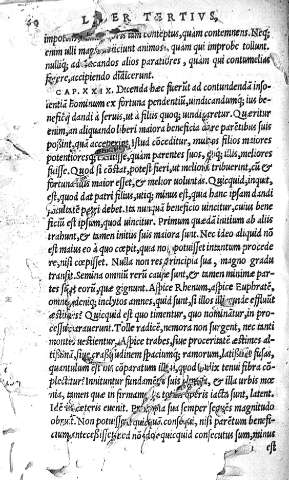 LIBER TERTIVS,
impot tam conteptus, quam contemnens. Neq;
enim ulli magis ducunt animos, quàm qui improbe tollunt.
nulliq; ad uocandos alios paratiores, quàm qui contumelias
facere, accipiendo didicerunt.
CAP. XXIX. Dicenda hæc fuerũt ad contundendã inso-
lentiã hominum ex fortuna pendentiũ, uindicandumq; ius be-
neficij dandi à seruis, ut à filijs quoq; uindicaretur. Quæritur
enim, an aliquando liberi maiora beneficia dare parẽtibus suis
possint, quã acceperint. istud cõceditur, multos filios maiores
potentioresq; quàm parentes suos, æquè illis, meliores
fuisse. Quod si cõstat, potest fieri, ut meliora tribuerint, cũ &
fortuna illis maior esset, & melior uoluntas. Quicquid, inquit,
est, quod dat patri filius, utiq; minus est, quia hanc ipsam dandi
facultatẽ patri debet. Ita nunquã beneficio uincitur, cuius bene-
ficiũ est ipsum, quod uincitur. Primum quædã initium ab alijs
trahunt, & tamen initijs suis maiora sunt. Nec ideo aliquid nõ
est maius eo à quo cœpit, quia non potuisset intantum procede-
re, nisi cœpisset. Nulla non res principia sua, magno gradu
transit. Semina omniũ rerũ causæ sunt, & tamen minimæ par-
tes sũt eorũ, quæ gignunt. Aspice Rhenum, aspice Euphratẽ,
omnes deniq; inclytos amnes, quid sunt, si illos illic, unde effluũt
æstimes? Quicquid est quo timentur, quo nominãtur, in pro-
cessu parauerunt. Tolle radicẽ, nemora non surgent, nec tanti
montes uestientur. Aspice trabes, siue proceritatẽ æstimes al-
tissimã, siue crassitudinem spaciumq; ramorum, latissimè fusas,
quantulum est his cõparatum illud, quod radix tenui fibra cõ-
plectitur? Innituntur fundamẽtis suis templa, & illa urbis mœ-
nia, tamen quæ in firmamẽtum totius operis iacta sunt, latent.
Idẽ in cæteris euenit. Principia sua semper sequẽs magnitudo
obruit. Non potuissem quicquã consequi, nisi parẽtum benefi-
cium antecessisset, sed nõ ideo quicquid consecutus sum, minus
est